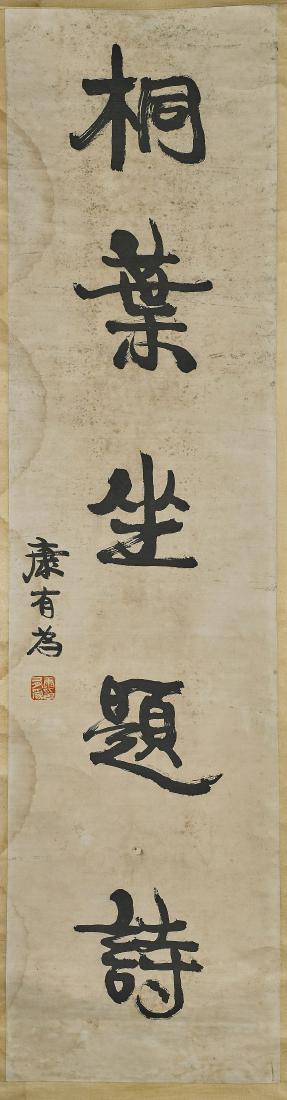 桐葉坐題詩
康有為